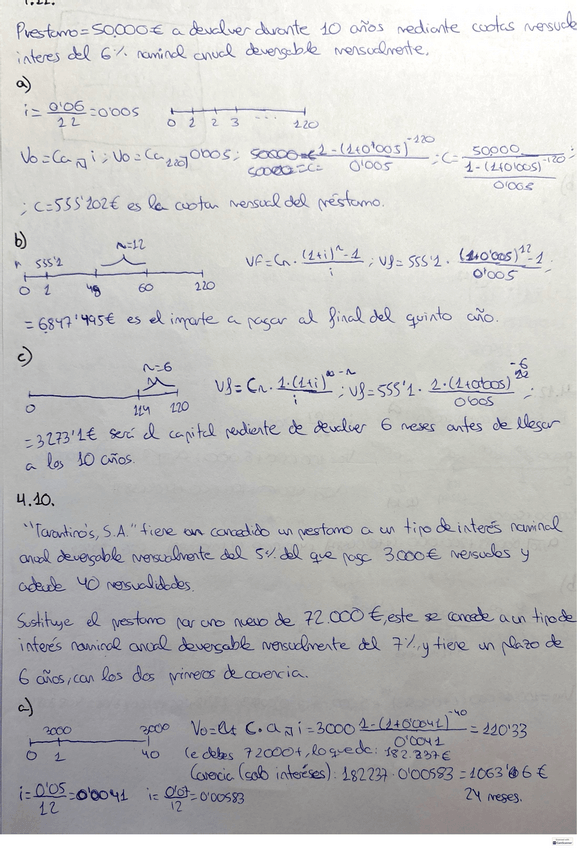 4.11.
Prestamo=50.000€ a devolver durante 10 años mediante cuotas mensuale
interes del 6% nominal anual devengable mensualmente.
a)
i = 0'06/12 = 0'005
0 1 2 3 ... 120
Vo=Ca n i ; Vo=Ca 120 0'005 ; 50000=C 1-(1+0'005)^-120 / 0'005 ; C= 50.000 / 1-(1+0'005)^-120 / 0'005 ;
; C=555'102€ es la cuotan mensual del préstamo.
b)
n=12
555'1
0 1 48 60 120
Vf=Cn. (1+i)^n -1 / i ; Vf=555'1. (1+0'005)^12 -1 / 0'005 ;
=6847'495€ es el importe a pagar al final del quinto año.
c)
n=6
0 114 120
Vf=Cn. 1-(1+i)^-n / i ; Vf=555'1. 1-(1+0'005)^-6 / 0'005 ;
=3273'1€ será el capital pendiente de devolver 6 meses antes de llegar
a los 10 años.
4.10.
"Tarantino's, S.A." tiene un concedido un prestamo a un tipo de interés nominal
anual devengable mensualmente del 5% del que paga 3.000€ mensuales y
adeude 40 mensualidades.
Sustituye el prestamo por uno nuevo de 72.000€, este se concede a un tipo de
interés nominal anual devengable mensualmente del 7%, y tiene un plazo de
6 años, con los dos primeros de carencia.
a)
3000 3000
0 1 40
Vo= C.a n i = 3000 1-(1+0'0041)^-40 / 0'0041 = 110'33
le debes 72000+, lo queda: 182.237€
Carencia (solo intereses): 182237 · 0'00583 = 1063'06 €
i= 0'05/12 = 0'0041 i= 0'07/12 = 0'00583 24 meses.